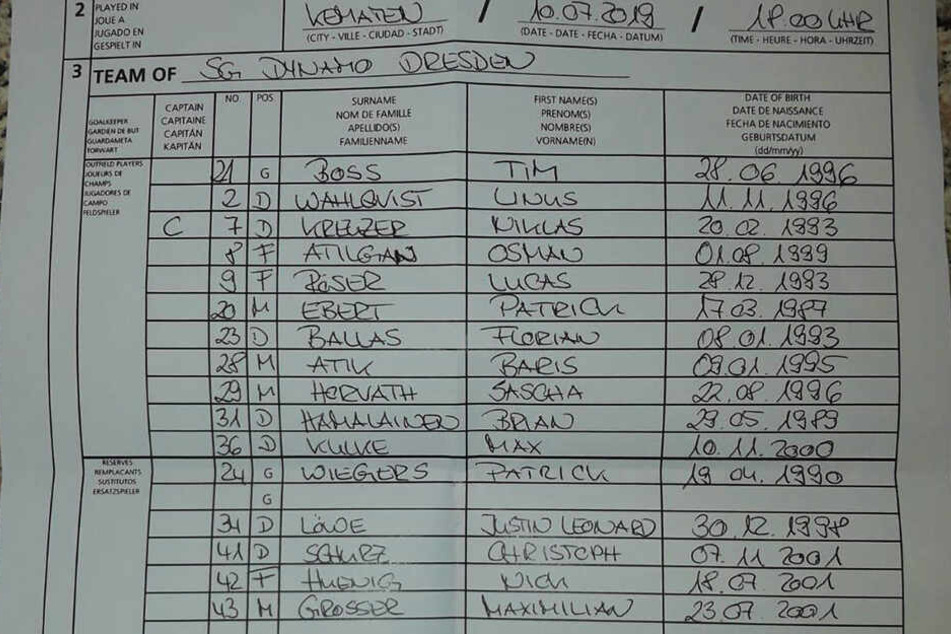 2 PLAYED IN KEMATEN / 10.07.2019 / 18.00 UHR
JOUE A
JUGADO EN
GESPIELT IN
(CITY - VILLE - CIUDAD - STADT) (DATE - DATE - FECHA - DATUM) (TIME - HEURE - HORA - UHRZEIT)
3 TEAM OF SG DYNAMO DRESDEN
GOALKEEPER
GARDIEN DE BUT
GUARDAMETA
TORWART
CAPTAIN
CAPITAINE
CAPITÁN
KAPITÄN
NO.
POS
SURNAME
NOM DE FAMILLE
APELLIDO(S)
FAMILIENNAME
FIRST NAME(S)
PRENOM(S)
NOMBRE(S)
VORNAME(N)
DATE OF BIRTH
DATE DE NAISSANCE
FECHA DE NACIMIENTO
GEBURTSDATUM
(dd/mm/yy)
OUTFIELD PLAYERS
JOUEURS DE
CHAMPS
JUGADORES DE
CAMPO
FELDSPIELER
21 G BOSS TIM 28.06.1996
2 D WAHLQVIST LINUS 11.11.1996
C 7 D KREUZER NIKLAS 20.02.1993
8 F ATILGAN OSMAN 01.08.1999
9 F RÖSER LUCAS 28.12.1993
20 M EBERT PATRICK 17.03.1987
23 D BALLAS FLORIAN 08.01.1993
28 M ATIK BARIS 09.01.1995
29 M HORVATH SASCHA 22.08.1996
31 D HAMALAINEN BRIAN 29.05.1989
36 D KULKE MAX 10.11.2000
RESERVES
REMPLACANTS
SUSTITUTOS
ERSATZSPIELER
24 G WIEGERS PATRICK 19 04.1990
G
34 D LÖWE JUSTIN LEONARD 30.12.1998
41 D SCHURZ CHRISTOPH 07.11 2001
42 F HUENIG NICK 18.07 2001
43 M GROSSER MAXIMILIAN 23.07 2001